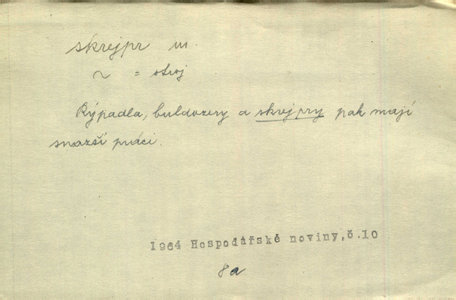 skrejpr m.
~ = stroj
Rýpadla, buldozery a skrejpry pak mají
snazší práci.
1964 Hospodářské noviny,č.10
8a